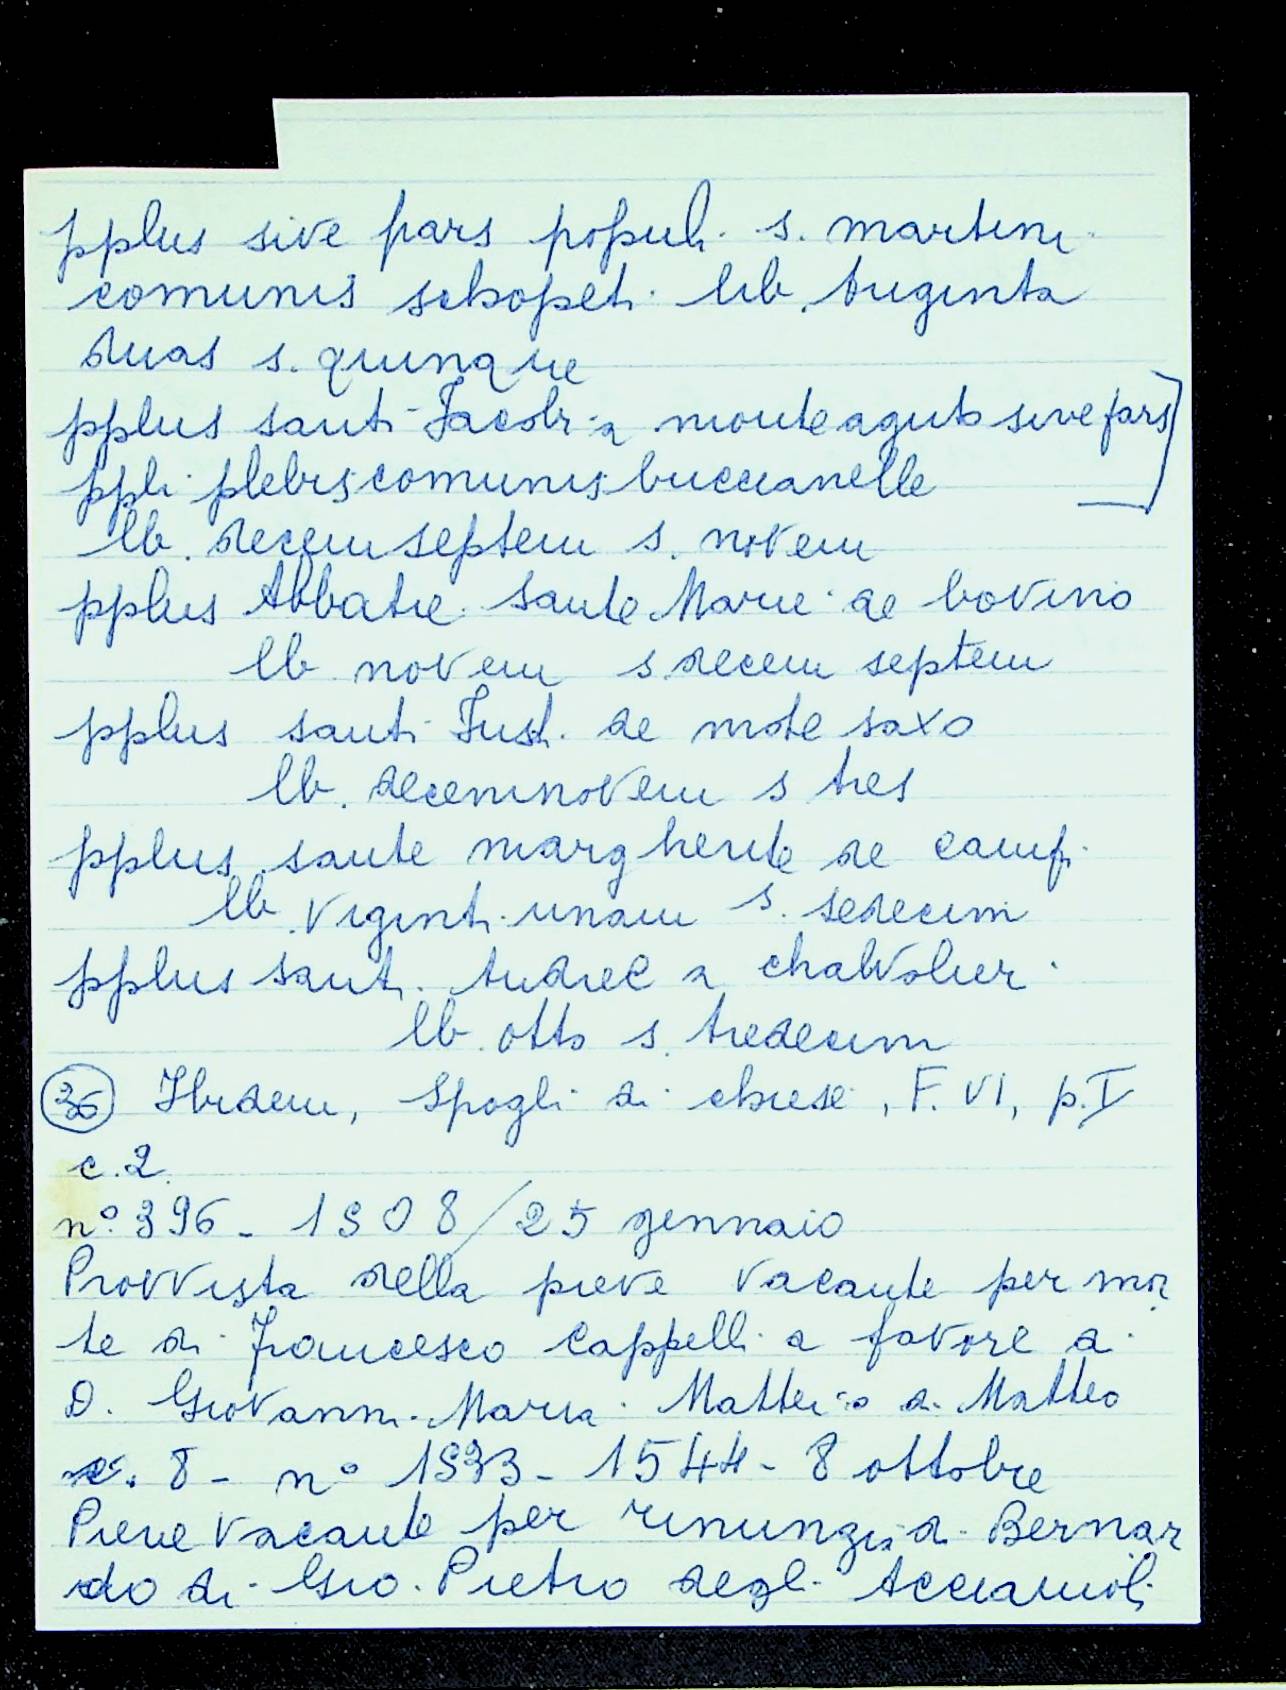 pplus sive pars populi s. martini
comunis schopeti lib. triginta
duas s. quinque
pplus santi Jacobi a monteaguto sive pars
ppli plebis comunis buccianelle
lb. decem septem s. novem
pplus Abbatie sante Marie de bovino
lb novem s. decem septem
pplus santi Justi de mote saxo
lb. decemnovem s tres
pplus sante margherite de campi
lb. viginti unam s. sedecim
pplus santi Andree a
lb. otto s. tredecim
36 Ibidem, Spogli di chiese, F. VI, p. V
c. 2.
n° 396 - 1508/25 gennaio
Provvista della pieve vacante per mor
te di Francesco Cappelli a favore di
D. Giovanni Maria Matteo di Matteo
c. 8 - n° 1533 - 1544 - 8 ottobre
Pieve vacante per rinunzia di Bernar
do di Gio. Pietro degli Acciaiuoli